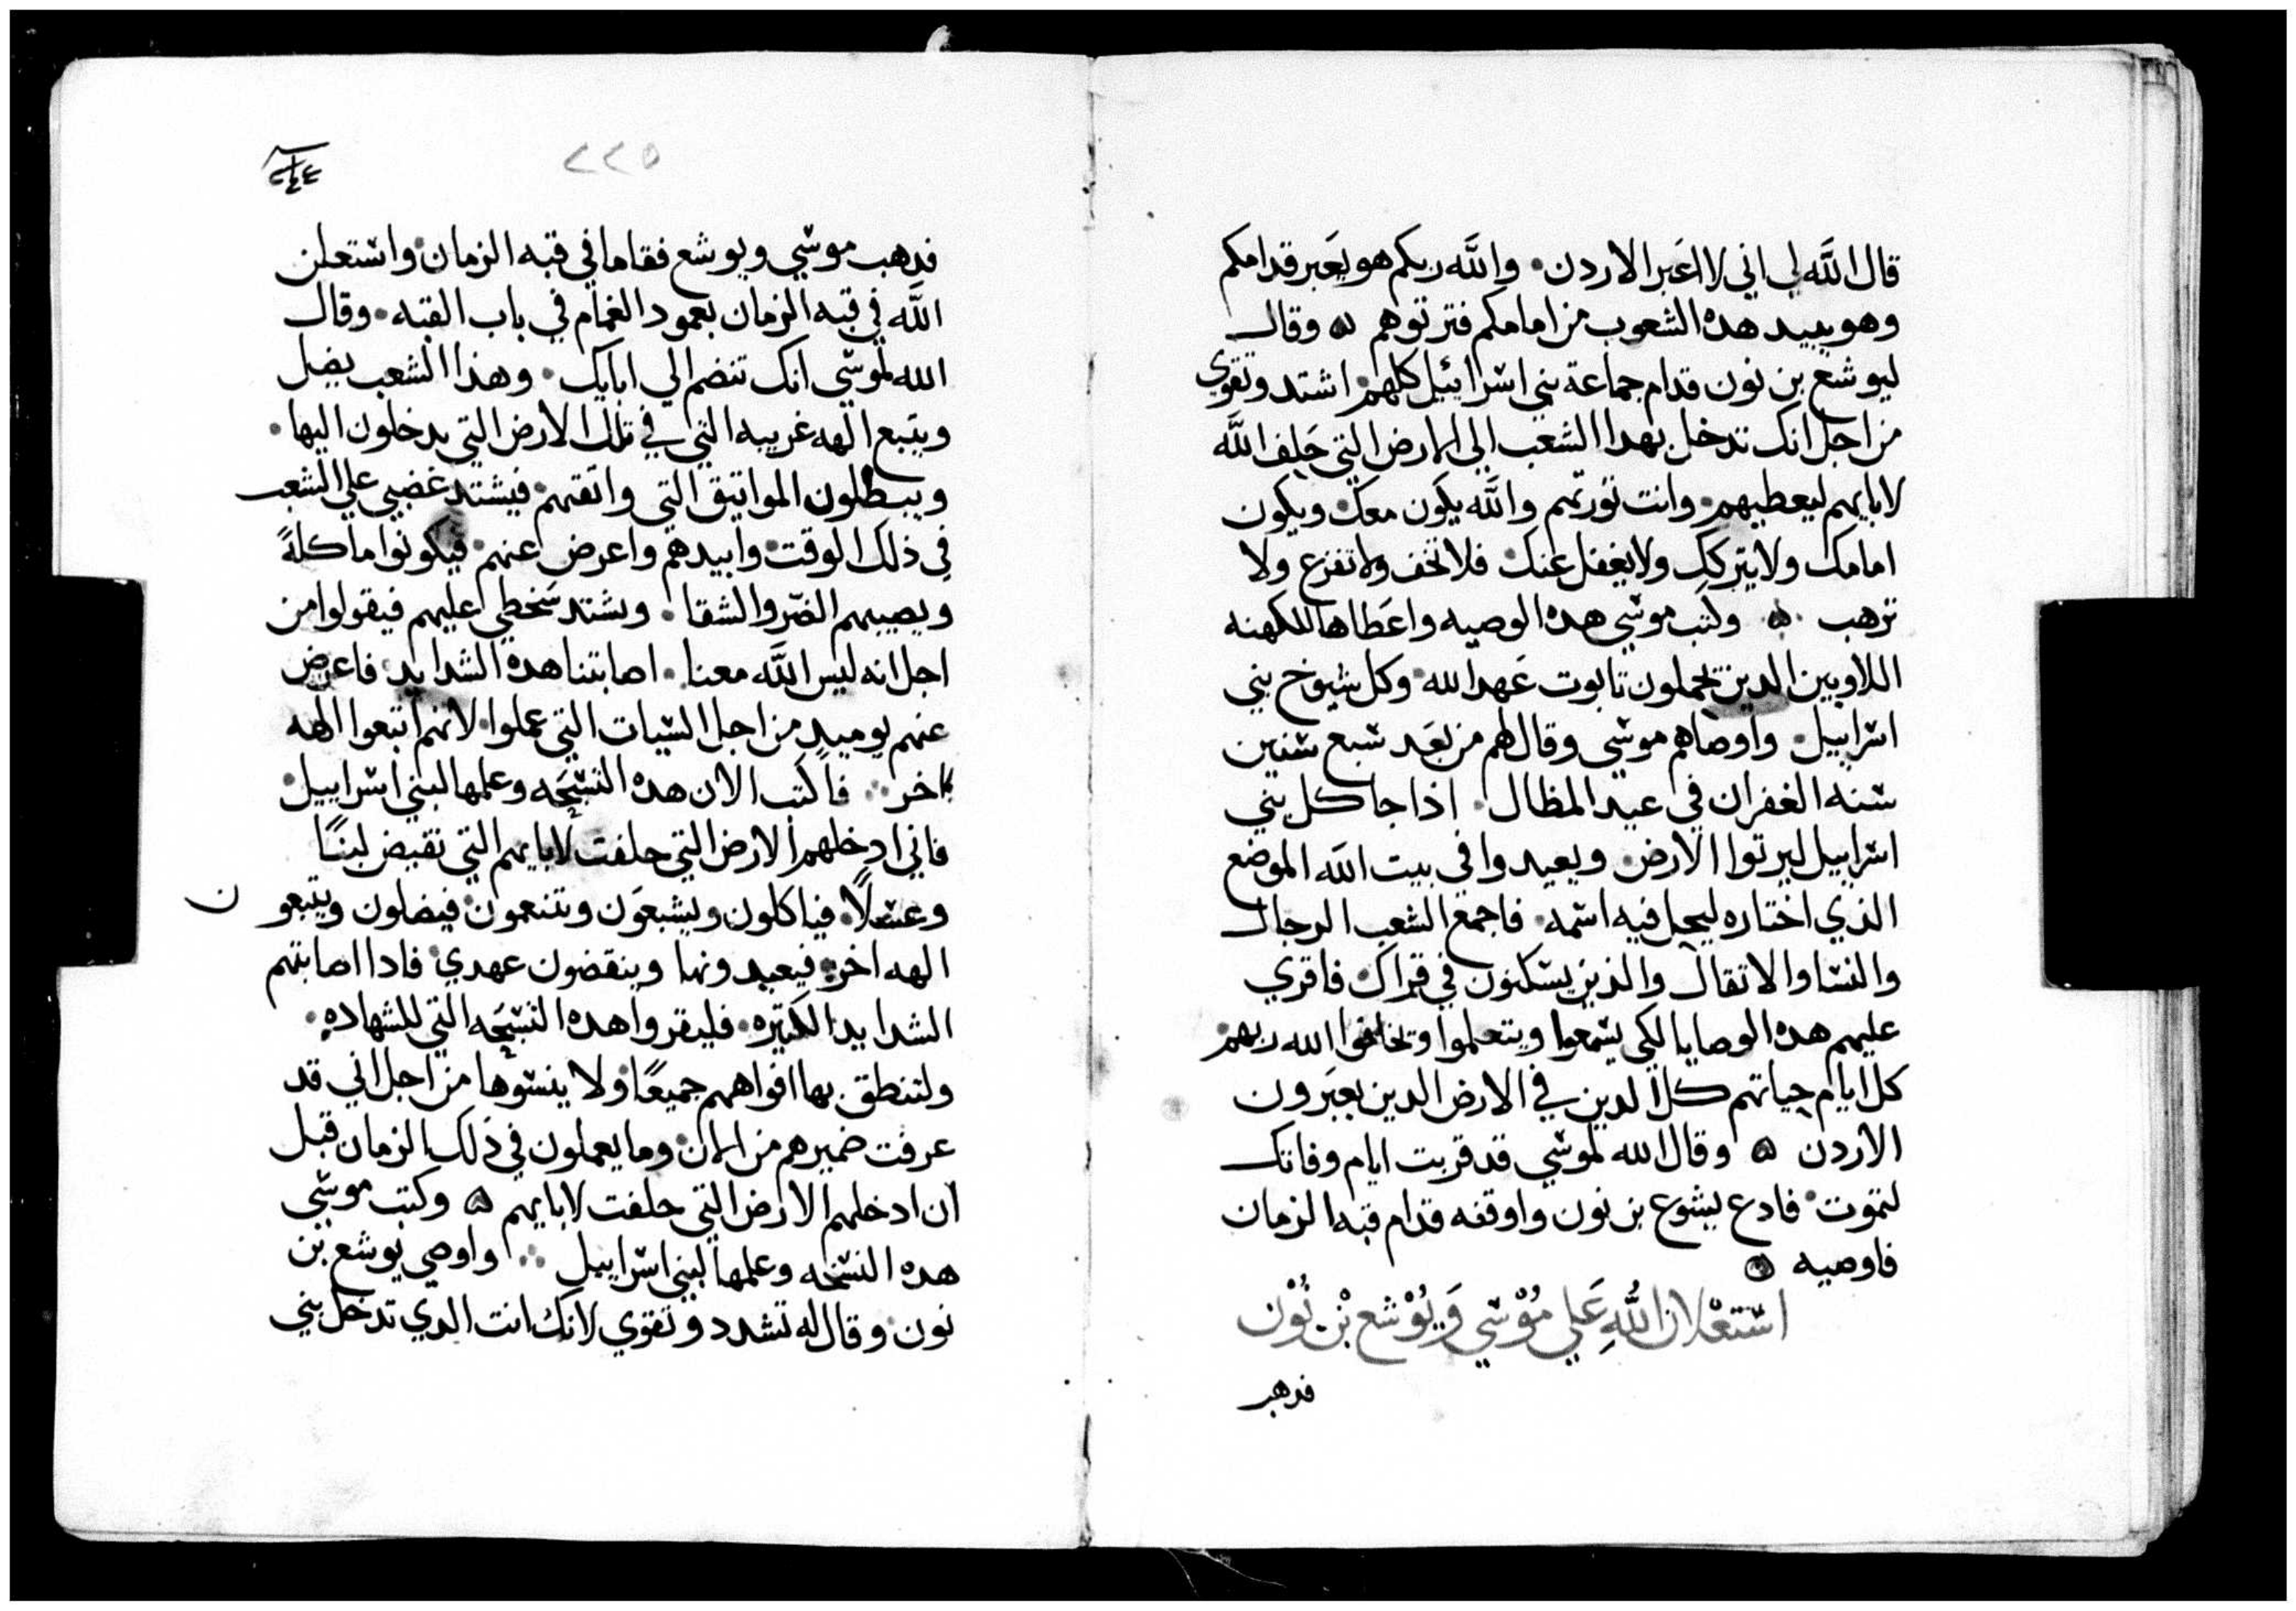 قال الله لي اني لا اعبر الاردن. والله ربكم هو يعبر قدامكم
وهو يبيد هده الشعوب من امامكم فترتوهم ه وقال
ليوشع بن نون قدام جماعة بني اسرائيل كلهم. اشتد وتقوي
من اجل انك تدخل بهدا الشعب الي الارض التي حلف الله
لابايهم ليعطيهم. وانت تورتهم والله يكون معك. ويكون
امامك ولا يتركك ولا يغفل عنك. فلا تخف ولا تفزع ولا
ترهب ه وكتب موسي هده الوصيه واعطاها للكهنه
اللاويين الدين يحملون تابوت عهد الله. وكل شيوخ بني
اسراييل. واوصاهم موسي وقال لهم من بعد سبع سنين
سنه الغفران في عيد المظال. اذا جا كل بني
اسراييل ليرتوا الارض. ويعيدوا في بيت الله الموضع
الذي اختاره ليحل فيه اسمه. فاجمع الشعب الرجال
والنسا والاتقال والذين يسكنون في قراك. فاقري
عليهم هده الوصايا لكي يسمعوا ويتعلموا وتخافوا الله ربهم.
كل ايام حياتهم كل الدين في الارض الدين يعبرون
الاردن ه وقال الله لموسي قد قربت ايام وفاتك
لتموت. فادع يشوع بن نون واوقفه قدام قبه الزمان
فاوصيه ه
استعلان اللهِ عَلي مُوْسي وَيُوْشع بْن نُوْن
فدهب
٢٢٥
٢٤٤
فدهب موسي ويوشع فقاما في قبه الزمان. واستعلن
الله في قبه الزمان بعمود الغمام في باب القبه. وقال
الله لموسي انك تنضم الي ابايك. وهذا الشعب يضل
ويتبع الهه غريبه التي في تلك الارض التي يدخلون اليها.
ويبطلون المواتيق التي واتقتهم. فيشتد غضبي علي الشعب
في ذلك الوقت. وابيدهم واعرض عنهم. فيكونوا ماكلةً
ويصيبهم الضر والشقا. ويشتد سخطي عليهم فيقولوا من
اجل انه ليس الله معنا. اصابتنا هده الشدايد. فاعرض
عنهم يوميدٍ من اجل السيات التي عملوا. لانهم اتبعوا الهه
اخر ∴ فاكتب الان هده النسخه وعلمها لبني اسراييل.
فاني ادخلهم الارض التي حلفت لابايهم التي تفيض لبنًا
وعسلًا. فياكلون ويشبعون ويتنعمون. فيضلون ويتبعون
الهه اخر. فيعبدونها وينقضون عهدي. فادا اصابتهم
الشدايد الكتيره. فليقروا هده النسخه التي للشهاده.
ولتنطق بها افواههم جميعًا. ولا ينسوها من اجل اني قد
عرفت ضميرهم من الان. وما يعملون في ذلك الزمان قبل
ان ادخلهم الارض التي حلفت لابايهم ه وكتب موسي
هده النسخه وعلمها لبني اسراييل ∴ واوصي يوشع بن
نون. وقال له تشدد وتقوي لانك انت الدي تدخل بني